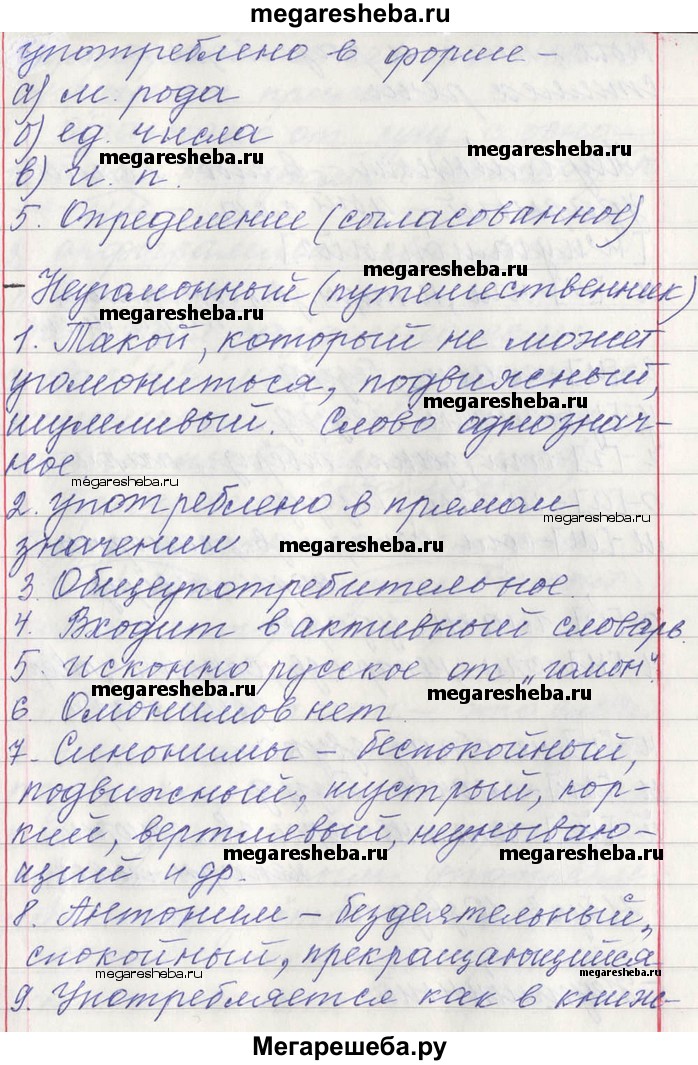 megaresheba.ru
употреблено в форме -
а) м. рода
б) ед. числа
megaresheba.ru megaresheba.ru
в) И. п.
5. Определение (согласованное)
megaresheba.ru
- Неугомонный (путешественник)
1. Такой, который не может
угомониться, подвижный,
megaresheba.ru
шумливый. Слово однознач-
ное
megaresheba.ru
2. употреблено в прямом
megaresheba.ru
значении
megaresheba.ru
3. Общеупотребительное.
4. Входит в активный словарь.
5. Исконно русское от „гомон".
megaresheba.ru megaresheba.ru
6. Омонимов нет.
7. Синонимы - беспокойный,
подвижный, шустрый, юр-
кий, вертлявый, неунываю-
megaresheba.ru megaresheba.ru
щий и др.
8. Антоним - бездеятельный,
спокойный, прекращающийся.
megaresheba.ru megaresheba.ru
9. Употребляется как в книж-
Мегарешеба.ру